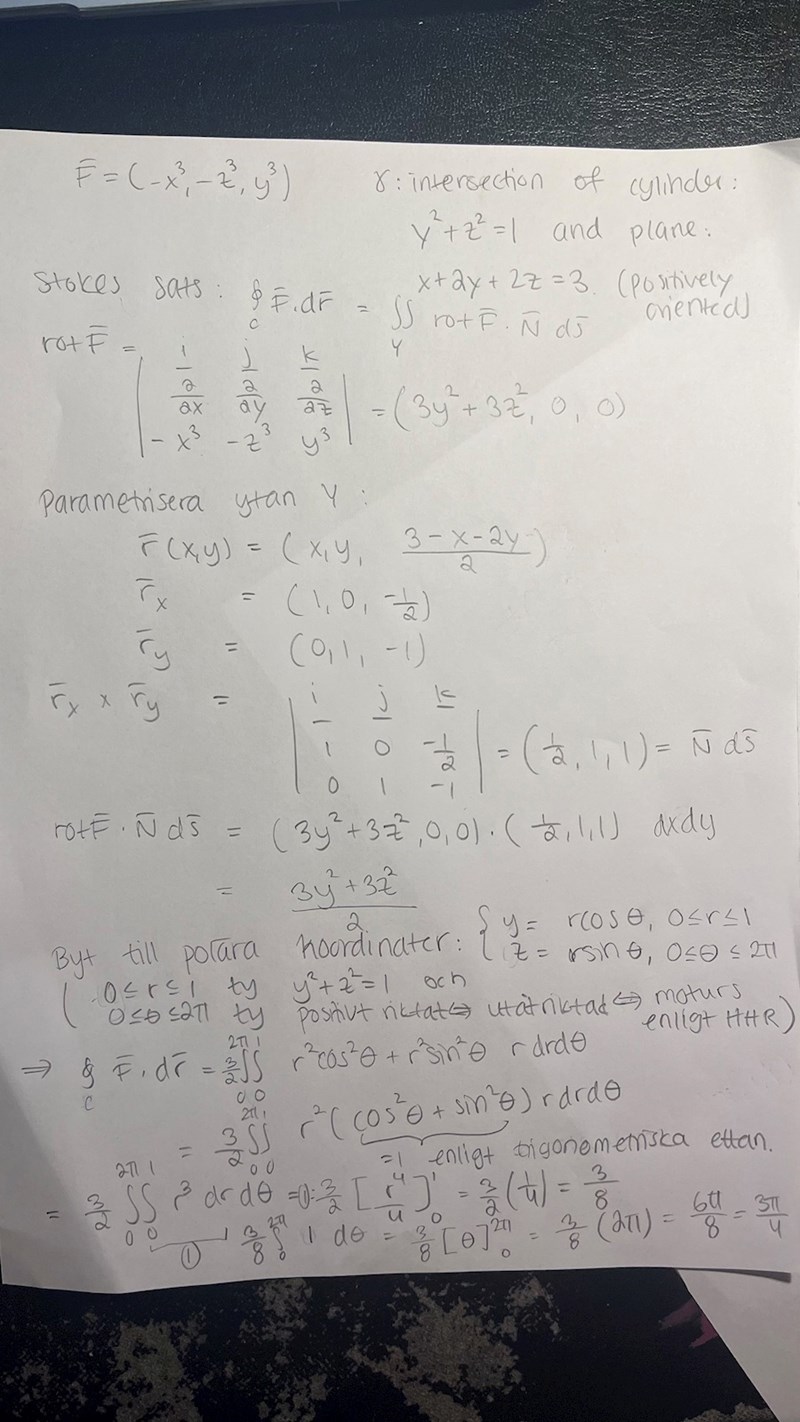 F̄ = (-x³, -z³, y³)   γ: intersection of cylinder:
y² + z² = 1 and plane:
x + 2y + 2z = 3. (positively oriented)
Stokes sats: ∮_C F̄ · dr̄ = ∬_Y rot F̄ · N̄ ds̄
rot F̄ = | i j k ; ∂/∂x ∂/∂y ∂/∂z ; -x³ -z³ y³ | = (3y² + 3z², 0, 0)
Parametrisera ytan Y:
r̄(x,y) = (x, y, (3-x-2y)/2)
r̄_x = (1, 0, -1/2)
r̄_y = (0, 1, -1)
r̄_x × r̄_y = | i j k ; 1 0 -1/2 ; 0 1 -1 | = (1/2, 1, 1) = N̄ ds̄
rot F̄ · N̄ ds̄ = (3y² + 3z², 0, 0) · (1/2, 1, 1) dxdy
= (3y² + 3z²)/2
Byt till polära koordinater: { y = r cos θ, 0 ≤ r ≤ 1
z = r sin θ, 0 ≤ θ ≤ 2π
( 0 ≤ r ≤ 1 ty y² + z² = 1 och
0 ≤ θ ≤ 2π ty positivt riktat ⇔ utåtriktad ⇔ moturs enligt HHR)
⇒ ∮_C F̄ · dr̄ = 3/2 ∫₀^2π ∫₀^1 r² cos² θ + r² sin² θ r dr dθ
= 3/2 ∫₀^2π ∫₀^1 r² (cos² θ + sin² θ) r dr dθ
= 1 enligt trigonometriska ettan.
= 3/2 ∫₀^2π ∫₀^1 r³ dr dθ = ①: 3/2 [r⁴/4]₀^1 = 3/2 (1/4) = 3/8
① 3/8 ∫₀^2π 1 dθ = 3/8 [θ]₀^2π = 3/8 (2π) = 6π/8 = 3π/4